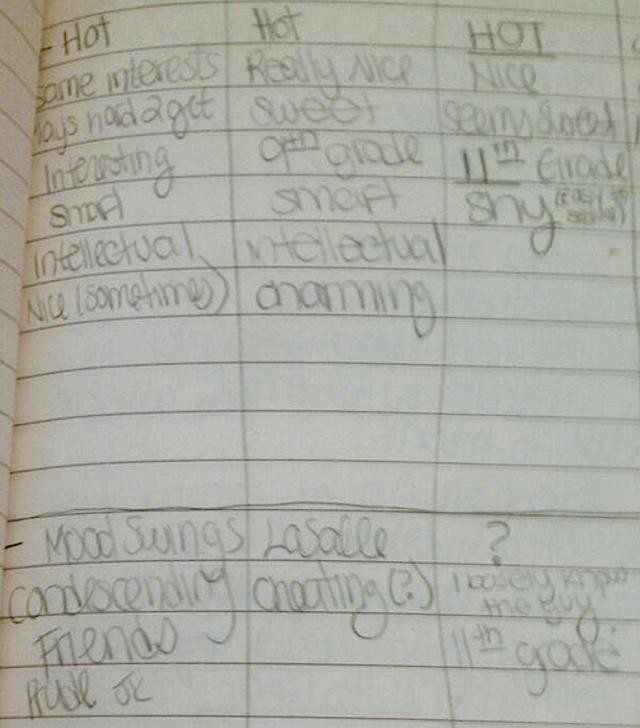 - Hot Hot HOT
same interests Really Nice Nice
lays hard 2 get sweet seems sweet
Interesting 9th grade 11th Grade
smart smart shy (easily
Intellectual intellectual
Nice (sometimes) charming
- Mood Swings LaSalle ?
Condescending cheating(?) I barely know
the guy
Friends 11th grade
Prude JK